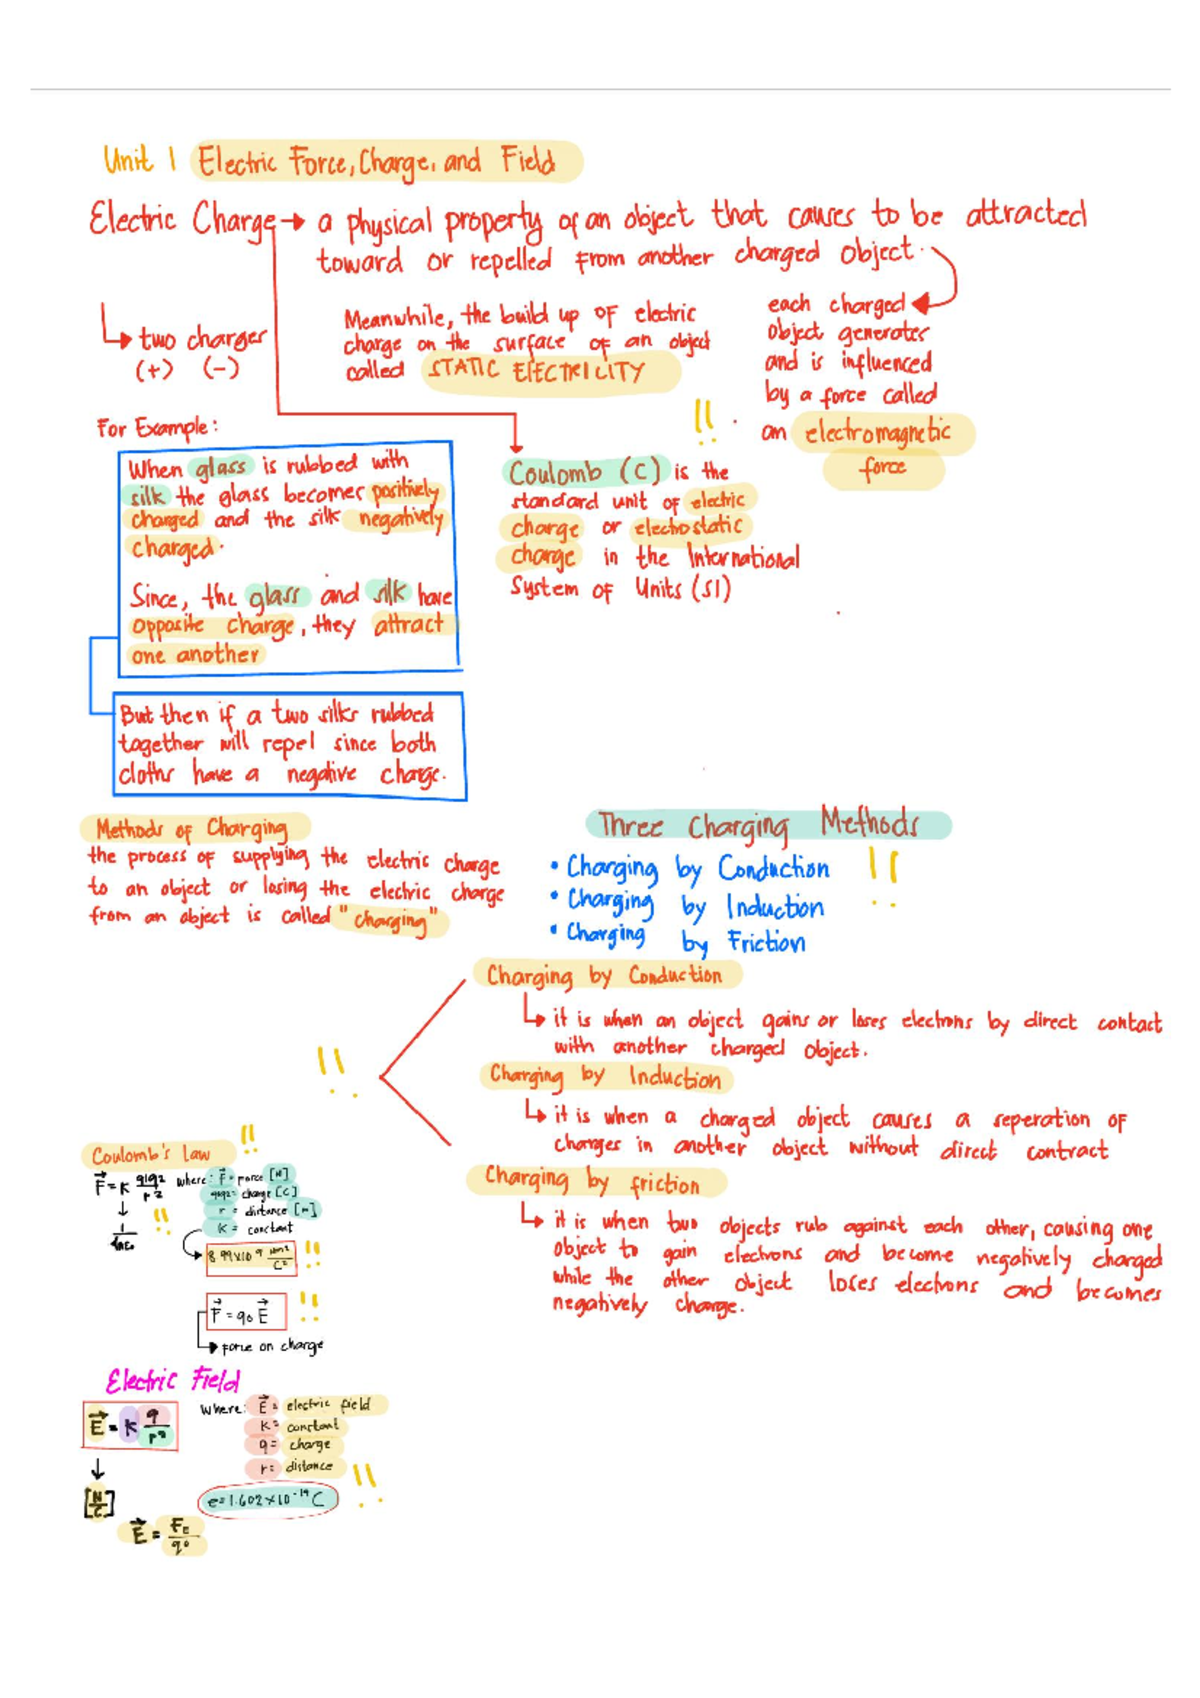 Unit 1 Electric Force, Charge, and Field
Electric Charge → a physical property of an object that causes to be attracted
toward or repelled from another charged object.
each charged
object generates
and is influenced
by a force called
an electromagnetic
force
two charges
(+) (-)
Meanwhile, the build up of electric
charge on the surface of an object
called STATIC ElECTRICITY
For Example:
When glass is rubbed with
silk the glass becomes positively
charged and the silk negatively
charged.
Since, the glass and silk have
opposite charge, they attract
one another
But then if a two silks rubbed
together will repel since both
cloths have a negative charge.
!!
Coulomb (C) is the
standard unit of electric
charge or electrostatic
charge in the International
System of Units (SI)
Methods of Charging
the process of supplying the electric charge
to an object or losing the electric charge
from an object is called "charging"
Three Charging Methods
• Charging by Conduction !!
• Charging by Induction
• Charging by Friction
!!
Charging by Conduction
it is when an object gains or loses electrons by direct contact
with another charged object.
Charging by Induction
it is when a charged object causes a seperation of
charges in another object without direct contract
Charging by friction
it is when two objects rub against each other, causing one
object to gain electrons and become negatively charged
while the other object loses electrons and becomes
negatively charge.
Coulomb's law !!
F = K q1q2 / r2 where: F = force [N]
q1q2 = charge [C]
r = distance [m]
K = constant
!!
8.99x10 9 Nm2/C2 !!
F = q0 E !!
→ force on charge
Electric Field
E = K q / r2
where: E = electric field
K = constant
q = charge
r = distance
[N/C]
e = 1.602 x 10 -19 C !!
E = FE / q0